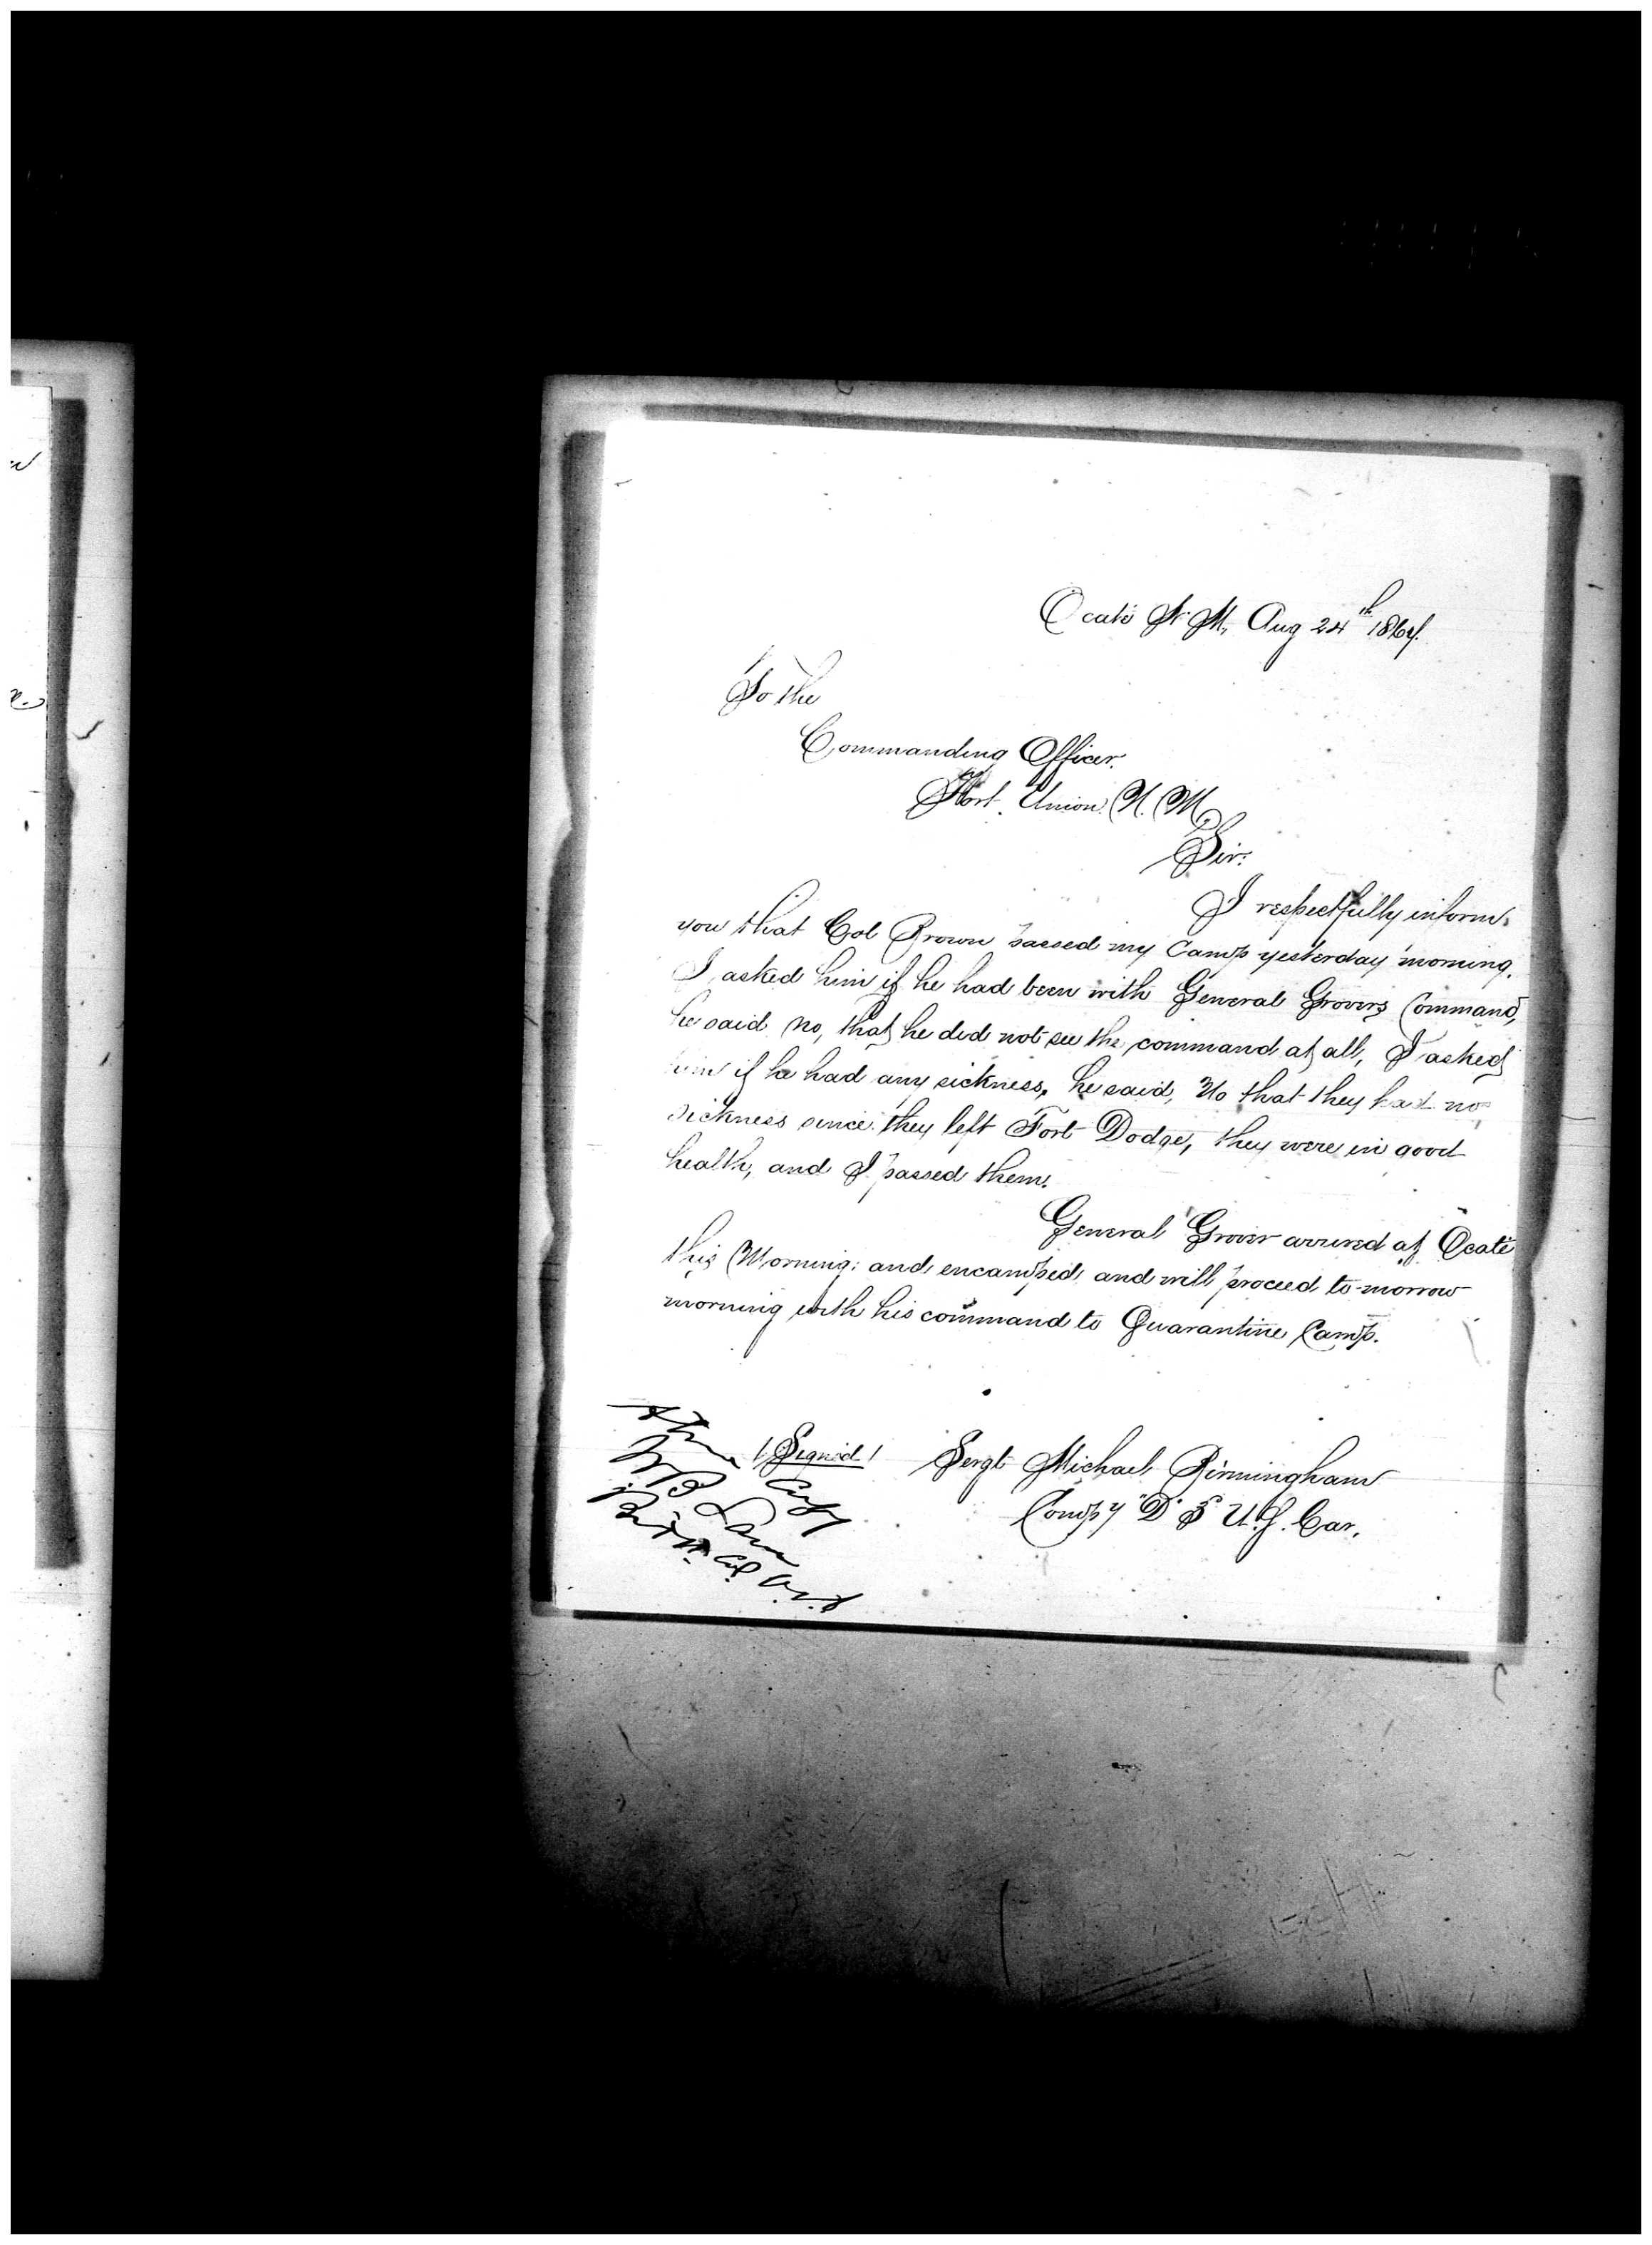 Ocaté N. M, Aug 24th 1867.
To the
Commanding Officer.
Fort Union. N. M,
Sir:
I respectfully inform
you that Col Brown passed my Camp yesterday morning.
I asked him if he had been with General Grovers Command,
he said no, that he did not see the command at all, I asked
him if he had any sickness, he said, No that they had no
sickness since they left Fort Dodge, they were in good
health, and I passed them.
General Grover arrived at Ocaté
this Morning: and encamped, and will proceed to-morrow
morning with his command to Quarantine Camp.
(Signed) Sergt Michael Birmingham
Comp'y "D" 3 U.S. Cav.
A true Copy
W B Lane